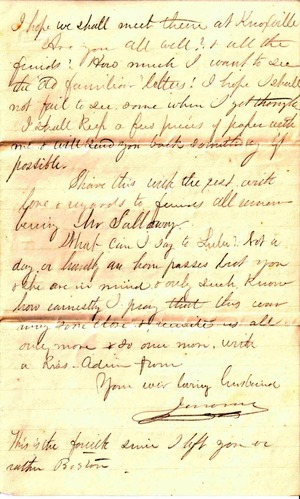 I hope we shall meet them at Knoxville
Are you all well? & all the
friends? How much I want to see
the old familiar letters! I hope I shall
not fail to see some when I get through
I shall keep a few pieces of paper with
me & will send you back something if
possible.
Share this with the rest with
love & regards to friends all
Mr
What can I say to Lulie? Not a
day or hardly an hour passes but you
& she are in mind & only such know
how earnestly I pray that this
may & reunite us all
once more & so once more with
a kiss. Adieu from
Your ever loving husband
Jerome
This is the fourth since I left you or
rather Boston